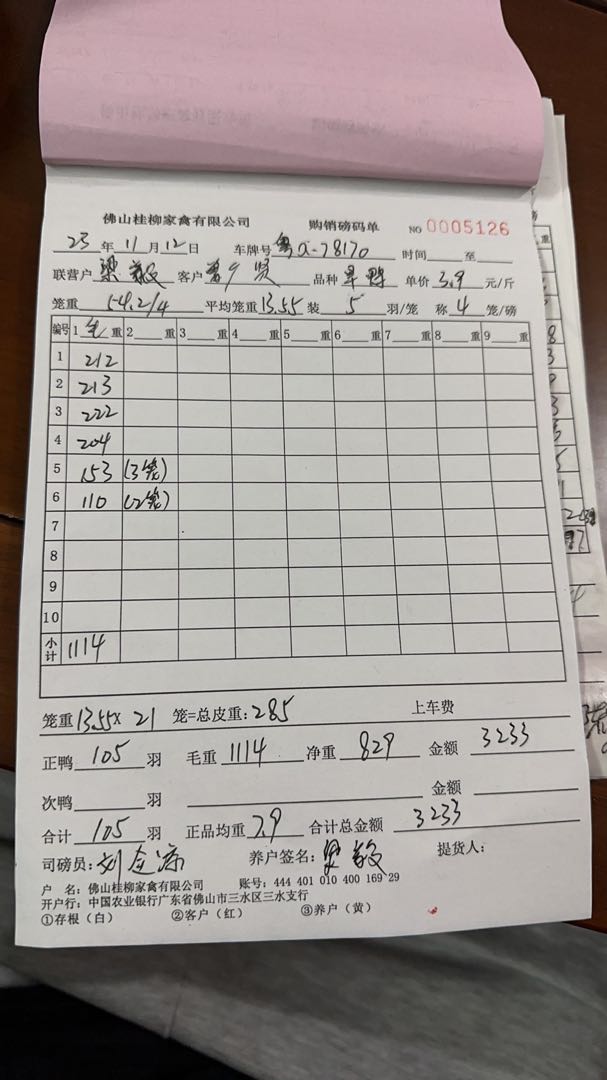 佛山桂柳家禽有限公司 购销磅码单 NO 0005126
23 年 11 月 12 日 车牌号 粤a-78170 时间 至
联营户 梁毅 客户 品种 旱鸭 单价 3.9 元/斤
笼重 54.2/4 平均笼重 13.55 装 5 羽/笼 称 4 笼/磅
编号 1 毛 重 2 重 3 重 4 重 5 重 6 重 7 重 8 重 9 重
1 212
2 213
3 222
4 204
5 153 (3笼)
6 110 (2笼)
7
8
9
10
小计 1114
笼重 13.55x 21 笼=总皮重: 285 上车费
正鸭 105 羽 毛重 1114 净重 829 金额 3233
次鸭 羽 金额
合计 105 羽 正品均重 7.9 合计总金额 3233
司磅员: 刘金 养户签名: 梁毅 提货人:
户 名: 佛山桂柳家禽有限公司 账号: 444 401 010 400 169 29
开户行: 中国农业银行广东省佛山市三水区三水支行
①存根（白） ②客户（红） ③养户（黄）